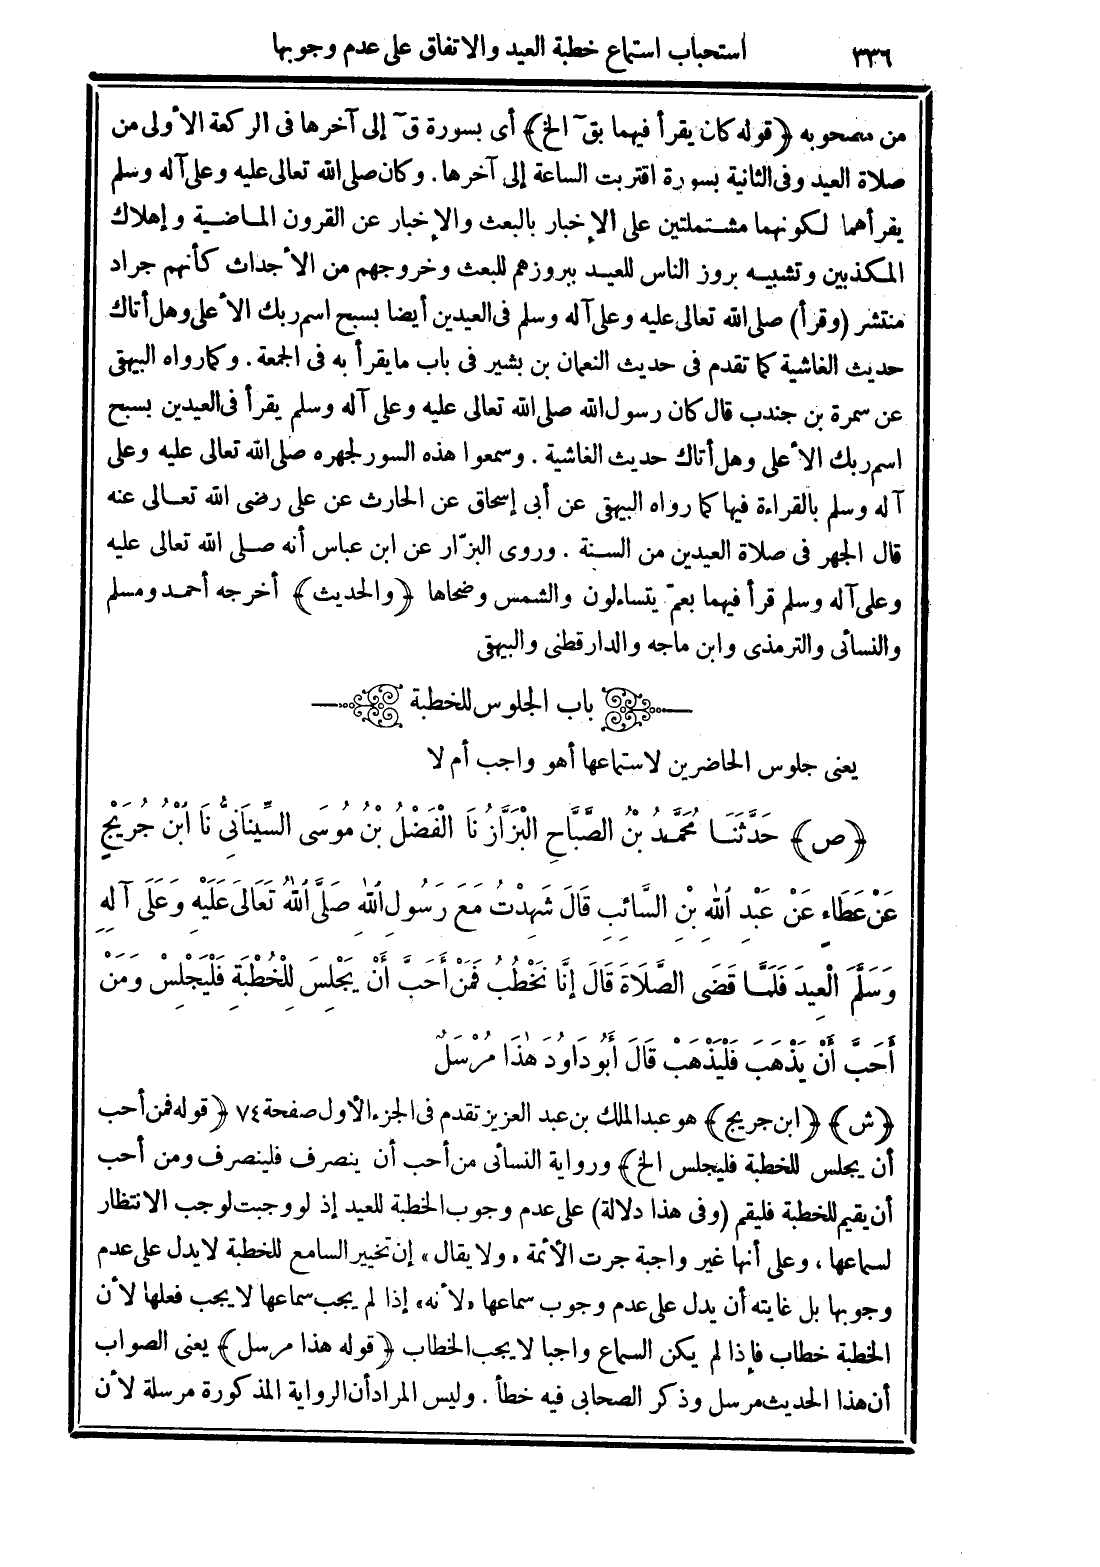 ٣٣٦ استحباب استماع خطبة العيد والاتفاق على عدم وجوبها
من مصحوبه ﴿قوله كان يقرأ فيهما بقۤ الخ﴾ أى بسورة قۤ إلى آخرها فى الركعة الأولى من
صلاة العيد وفى الثانية بسورة اقتربت الساعة إلى آخرها. وكان صلى الله تعالى عليه وعلى آله وسلم
يقرأهما لكونهما مشتملتين على الإخبار بالبعث والإخبار عن القرون الماضية وإهلاك
المكذبين وتشبيه بروز الناس للعيد ببروزهم للبعث وخروجهم من الأجداث كأنهم جراد
منتشر (وقرأ) صلى الله تعالى عليه وعلى آله وسلم فى العيدين أيضا بسبح اسم ربك الأعلى وهل أتاك
حديث الغاشية كما تقدم فى حديث النعمان بن بشير فى باب ما يقرأ به فى الجمعة. وكما رواه البيهقى
عن سمرة بن جندب قال كان رسول الله صلى الله تعالى عليه وعلى آله وسلم يقرأ فى العيدين بسبح
اسم ربك الأعلى وهل أتاك حديث الغاشية. وسمعوا هذه السور لجهره صلى الله تعالى عليه وعلى
آله وسلم بالقراءة فيها كما رواه البيهقى عن أبى إسحاق عن الحارث عن على رضى الله تعالى عنه
قال الجهر فى صلاة العيدين من السنة. وروى البزّار عن ابن عباس أنه صلى الله تعالى عليه
وعلى آله وسلم قرأ فيهما بعمّ يتساءلون والشمس وضحاها ﴿والحديث﴾ أخرجه أحمد ومسلم
والنسائى والترمذى وابن ماجه والدارقطنى والبيهقى
باب الجلوس للخطبة
يعنى جلوس الحاضرين لاستماعها أهو واجب أم لا
﴿ص﴾ حَدَّثَنَا مُحَمَّدُ بْنُ الصَّبَّاحِ الْبَزَّازُ نَا الْفَضْلُ بْنُ مُوسَى السِّينَانِىُّ نَا ابْنُ جُرَيْجٍ
عَنْ عَطَاءٍ عَنْ عَبْدِ اللهِ بْنِ السَّائِبِ قَالَ شَهِدْتُ مَعَ رَسُولِ اللهِ صَلَّى اللهُ تَعَالَى عَلَيْهِ وَعَلَى آلِهِ
وَسَلَّمَ الْعِيدَ فَلَمَّا قَضَى الصَّلَاةَ قَالَ إِنَّا نَخْطُبُ فَمَنْ أَحَبَّ أَنْ يَجْلِسَ لِلْخُطْبَةِ فَلْيَجْلِسْ وَمَنْ
أَحَبَّ أَنْ يَذْهَبَ فَلْيَذْهَبْ قَالَ أَبُو دَاوُدَ هٰذَا مُرْسَلٌ
﴿ش﴾ ﴿ابن جريج﴾ هو عبد الملك بن عبد العزيز تقدم فى الجزء الأول صفحة ٧٤ ﴿قوله فمن أحب
أن يجلس للخطبة فليجلس الخ﴾ ورواية النسائى من أحب أن ينصرف فلينصرف ومن أحب
أن يقيم للخطبة فليقم (وفى هذا دلالة) على عدم وجوب الخطبة للعيد إذ لو وجبت لوجب الانتظار
لسماعها، وعلى أنها غير واجبة جرت الأئمة «ولا يقال» إن تخيير السامع للخطبة لا يدل على عدم
وجوبها بل غايته أن يدل على عدم وجوب سماعها «لأنه» إذا لم يجب سماعها لا يجب فعلها لأن
الخطبة خطاب فإذا لم يكن السماع واجبا لا يجب الخطاب ﴿قوله هذا مرسل﴾ يعنى الصواب
أن هذا الحديث مرسل وذكر الصحابى فيه خطأ. وليس المراد أن الرواية المذكورة مرسلة لأن